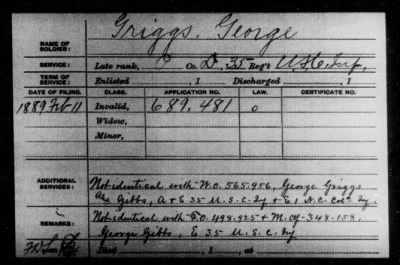 Griggs, George
NAME OF SOLDIER:
SERVICE: Late rank, P Co. D, 35 Reg't U.S.C. Inf,
TERM OF SERVICE: Enlisted , 1 Discharged , 1
DATE OF FILING. CLASS. APPLICATION NO. LAW. CERTIFICATE NO.
1889 Feb 11 Invalid, 689.481 o
Widow,
Minor,
ADDITIONAL SERVICES: Not identical with W.O. 565.956, George Griggs
als Gibbs, A & E 35 U.S.C. Iy & E 1 N.C. Col Iy.
REMARKS: Not identical with 498.925 & M. 348.158,
George Gibbs, E 35 U.S.C. Iy
Died , 1 , at